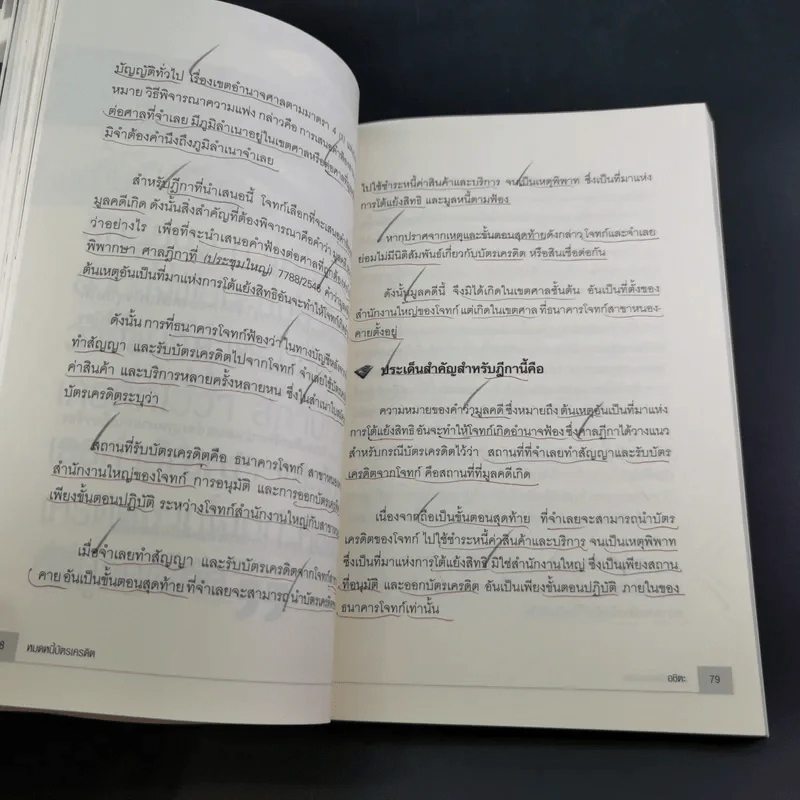 บัญญัติทั่วไป เรื่องเขตอำนาจศาลตามมาตรา 4 (1)
หมาย วิธีพิจารณาความแพ่ง กล่าวคือ การเสนอคำฟ้อง
ต่อศาลที่จำเลย มีภูมิลำเนาอยู่ในเขตศาลหรือต่อศาลที่
มิจำต้องคำนึงถึงภูมิลำเนาจำเลย
สำหรับฎีกาที่นำเสนอนี้ โจทก์เลือกที่จะเสนอคำ
มูลคดีเกิด ดังนั้นสิ่งสำคัญที่ต้องพิจารณาคือคำว่า
ว่าอย่างไร เพื่อที่จะนำเสนอคำฟ้องต่อศาลที่ถูกต้อง
พิพากษา ศาลฎีกาที่ (ประชุมใหญ่) 7788/2546
ต้นเหตุอันเป็นที่มาแห่งการโต้แย้งสิทธิอันจะทำให้โจทก์
ดังนั้น การที่ธนาคารโจทก์ฟ้องว่า
ทำสัญญา และรับบัตรเครดิตไปจากโจทก์ จำเลยใช้บัตร
ค่าสินค้า และบริการหลายครั้งหลายหน ซึ่งในสำเนา
บัตรเครดิตระบุว่า
สถานที่รับบัตรเครดิตคือ ธนาคารโจทก์ สาขา
สำนักงานใหญ่ของโจทก์ การอนุมัติ และการออกบัตร
เพียงขั้นตอนปฏิบัติ ระหว่างโจทก์สำนักงานใหญ่กับสาขา
เมื่อจำเลยทำสัญญา และรับบัตรเครดิตจากโจทก์
คาย อันเป็นขั้นตอนสุดท้าย ที่จำเลยจะสามารถนำบัตรเครดิต
8 หมดหนี้บัตรเครดิต
ไปใช้ชำระหนี้ค่าสินค้าและบริการ จนเป็นเหตุพิพาท ซึ่งเป็นที่มาแห่ง
การโต้แย้งสิทธิ และมูลหนี้ตามฟ้อง
หากปราศจากเหตุและขั้นตอนสุดท้ายดังกล่าว โจทก์และจำเลย
ย่อมไม่มีนิติสัมพันธ์เกี่ยวกับบัตรเครดิต หรือสินเชื่อต่อกัน
ดังนั้นมูลคดีนี้ จึงมิได้เกิดในเขตศาลชั้นต้น อันเป็นที่ตั้งของ
สำนักงานใหญ่ของโจทก์ แต่เกิดในเขตศาล ที่ธนาคารโจทก์สาขาหนอง-
คายตั้งอยู่
ประเด็นสำคัญสำหรับฎีกานี้คือ
ความหมายของคำว่ามูลคดี ซึ่งหมายถึง ต้นเหตุอันเป็นที่มาแห่ง
การโต้แย้งสิทธิ อันจะทำให้โจทก์เกิดอำนาจฟ้อง ซึ่งศาลฎีกาได้วางแนว
สำหรับกรณีบัตรเครดิตไว้ว่า สถานที่ที่จำเลยทำสัญญาและรับบัตร
เครดิตจากโจทก์ คือสถานที่ที่มูลคดีเกิด
เนื่องจากถือเป็นขั้นตอนสุดท้าย ที่จำเลยจะสามารถนำบัตร
เครดิตของโจทก์ ไปใช้ชำระหนี้ค่าสินค้าและบริการ จนเป็นเหตุพิพาท
ซึ่งเป็นที่มาแห่งการโต้แย้งสิทธิ มิใช่สำนักงานใหญ่ ซึ่งเป็นเพียงสถาน
ที่อนุมัติ และออกบัตรเครดิต อันเป็นเพียงขั้นตอนปฏิบัติ ภายในของ
ธนาคารโจทก์เท่านั้น
อชิตะ 79